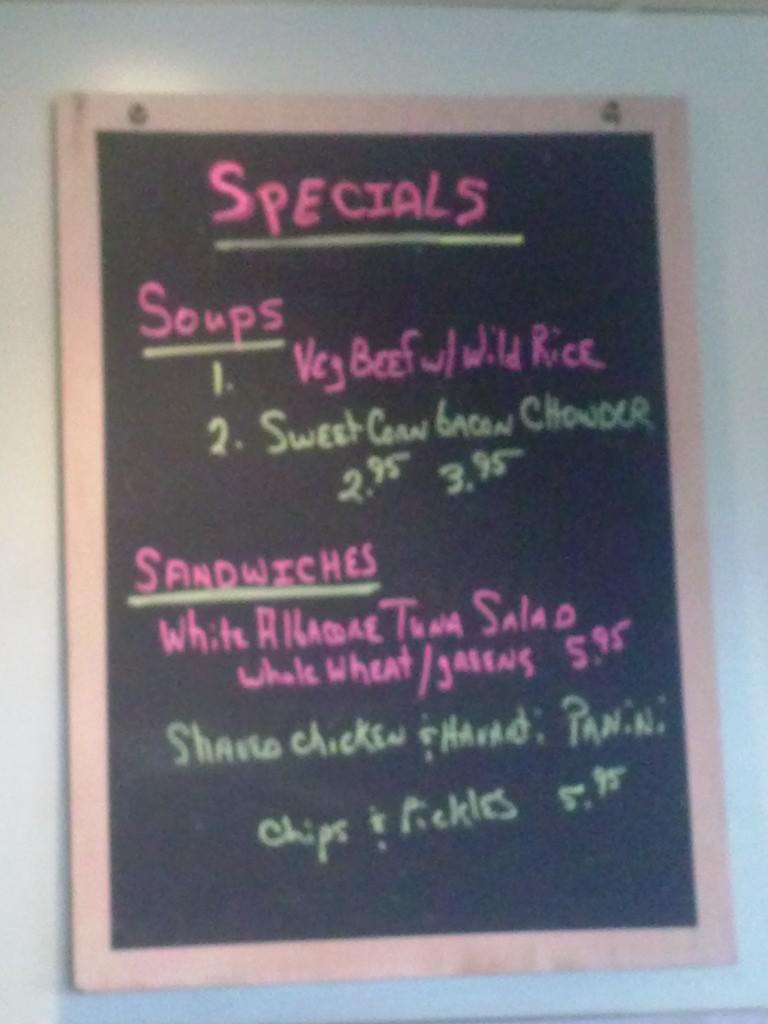 SPECIALS
Soups
1. Veg BEEF w/ Wild RICE
2. SWEET CORN bacon CHOWDER
2.95 3.95
SANDWICHES
White AlbACORE TUNA SALAD
whole wheat/greens 5.95
Shaved chicken & HAVARTi PANiNi
chips & Pickles 5.95